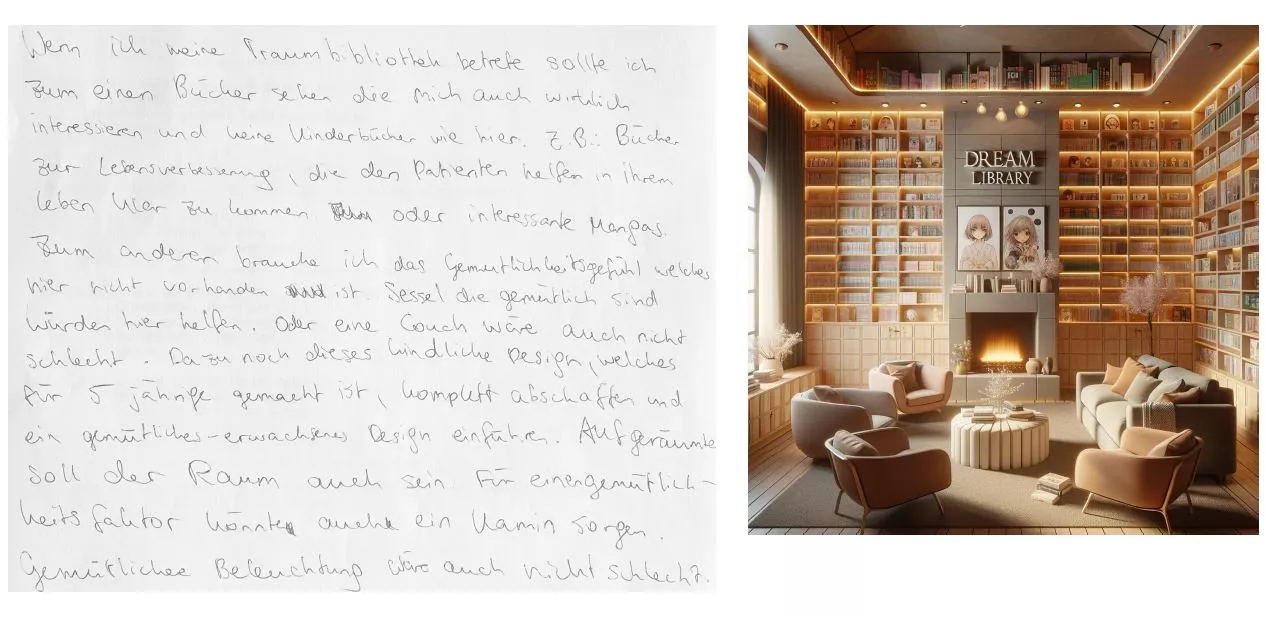 Wenn ich meine Traumbibliothek betrete sollte ich
zum einen Bücher sehen die mich auch wirklich
interessieren und keine Kinderbücher wie hier. Z.B.: Bücher
zur Lebensverbesserung, die den Patienten helfen in ihrem
leben klar zu kommen oder interessante Mangas.
Zum anderen brauche ich das Gemütlichkeitsgefühl welches
hier nicht vorhanden ist. Sessel die gemütlich sind
würden hier helfen. Oder eine Couch wäre auch nicht
schlecht. Dazu noch dieses kindliche Design, welches
für 5 jährige gemacht ist, komplett abschaffen und
ein gemütliches-erwachsenes Design einführen. Aufgeräumte
soll der Raum auch sein. Für einen gemütlich-
keitsfaktor könnte auch ein Kamin sorgen.
Gemütliches Beleuchtung wäre auch nicht schlecht.
DREAM
LIBRARY